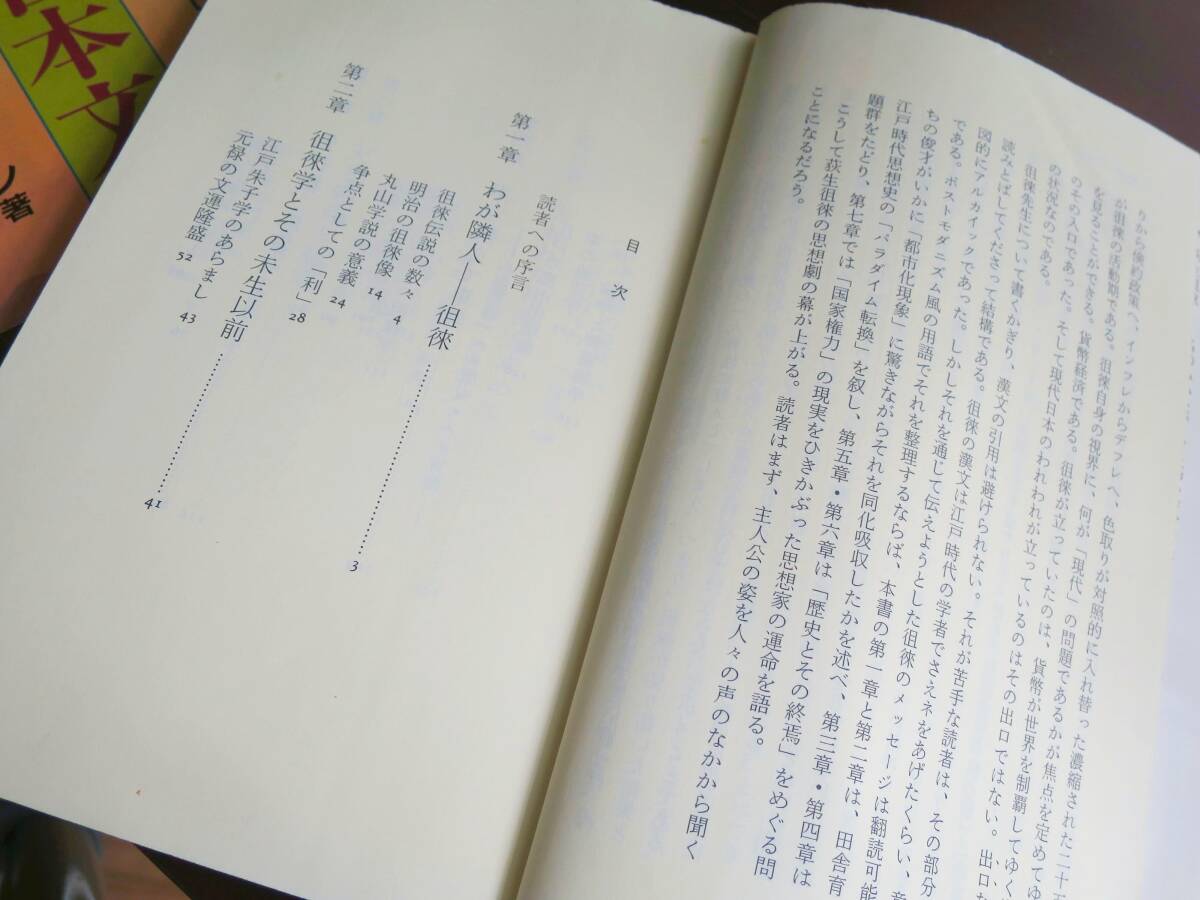 りから倹約政策へ、インフレからデフレへ、色取りが対照的に入れ替った濃縮された二十五
が徂徠の活動期である。徂徠自身の視界に、何が「現代」の問題であるかが焦点を定めてゆ
を見ることができる。貨幣経済である。徂徠が立っていたのは、貨幣が世界を制覇してゆく
のその入口であった。そして現代日本のわれわれが立っているのはその出口ではない。出口な
の状況なのである。
徂徠先生について書くかぎり、漢文の引用は避けられない。それが苦手な読者は、その部分
読みとばしてくださって結構である。徂徠の漢文は江戸時代の学者でさえネをあげたくらい、意
図的にアルカイックであった。しかしそれを通じて伝えようとした徂徠のメッセージは翻読可能
である。ポストモダニズム風の用語でそれを整理するならば、本書の第一章と第二章は、田舎育
ちの俊才がいかに「都市化現象」に驚きながらそれを同化吸収したかを述べ、第三章・第四章は
江戸時代思想史の「パラダイム転換」を叙し、第五章・第六章は「歴史とその終焉」をめぐる問
題群をたどり、第七章では「国家権力」の現実をひきかぶった思想家の運命を語る。
こうして荻生徂徠の思想劇の幕が上がる。読者はまず、主人公の姿を人々の声のなかから聞く
ことになるだろう。
目次
読者への序言
第一章 わが隣人──徂徠 …… 3
徂徠伝説の数々 4
明治の徂徠像 14
丸山学説の意義 24
争点としての「利」 28
第二章 徂徠学とその未生以前 …… 41
江戸朱子学のあらまし 43
元禄の文運隆盛 52
本文
ノ著